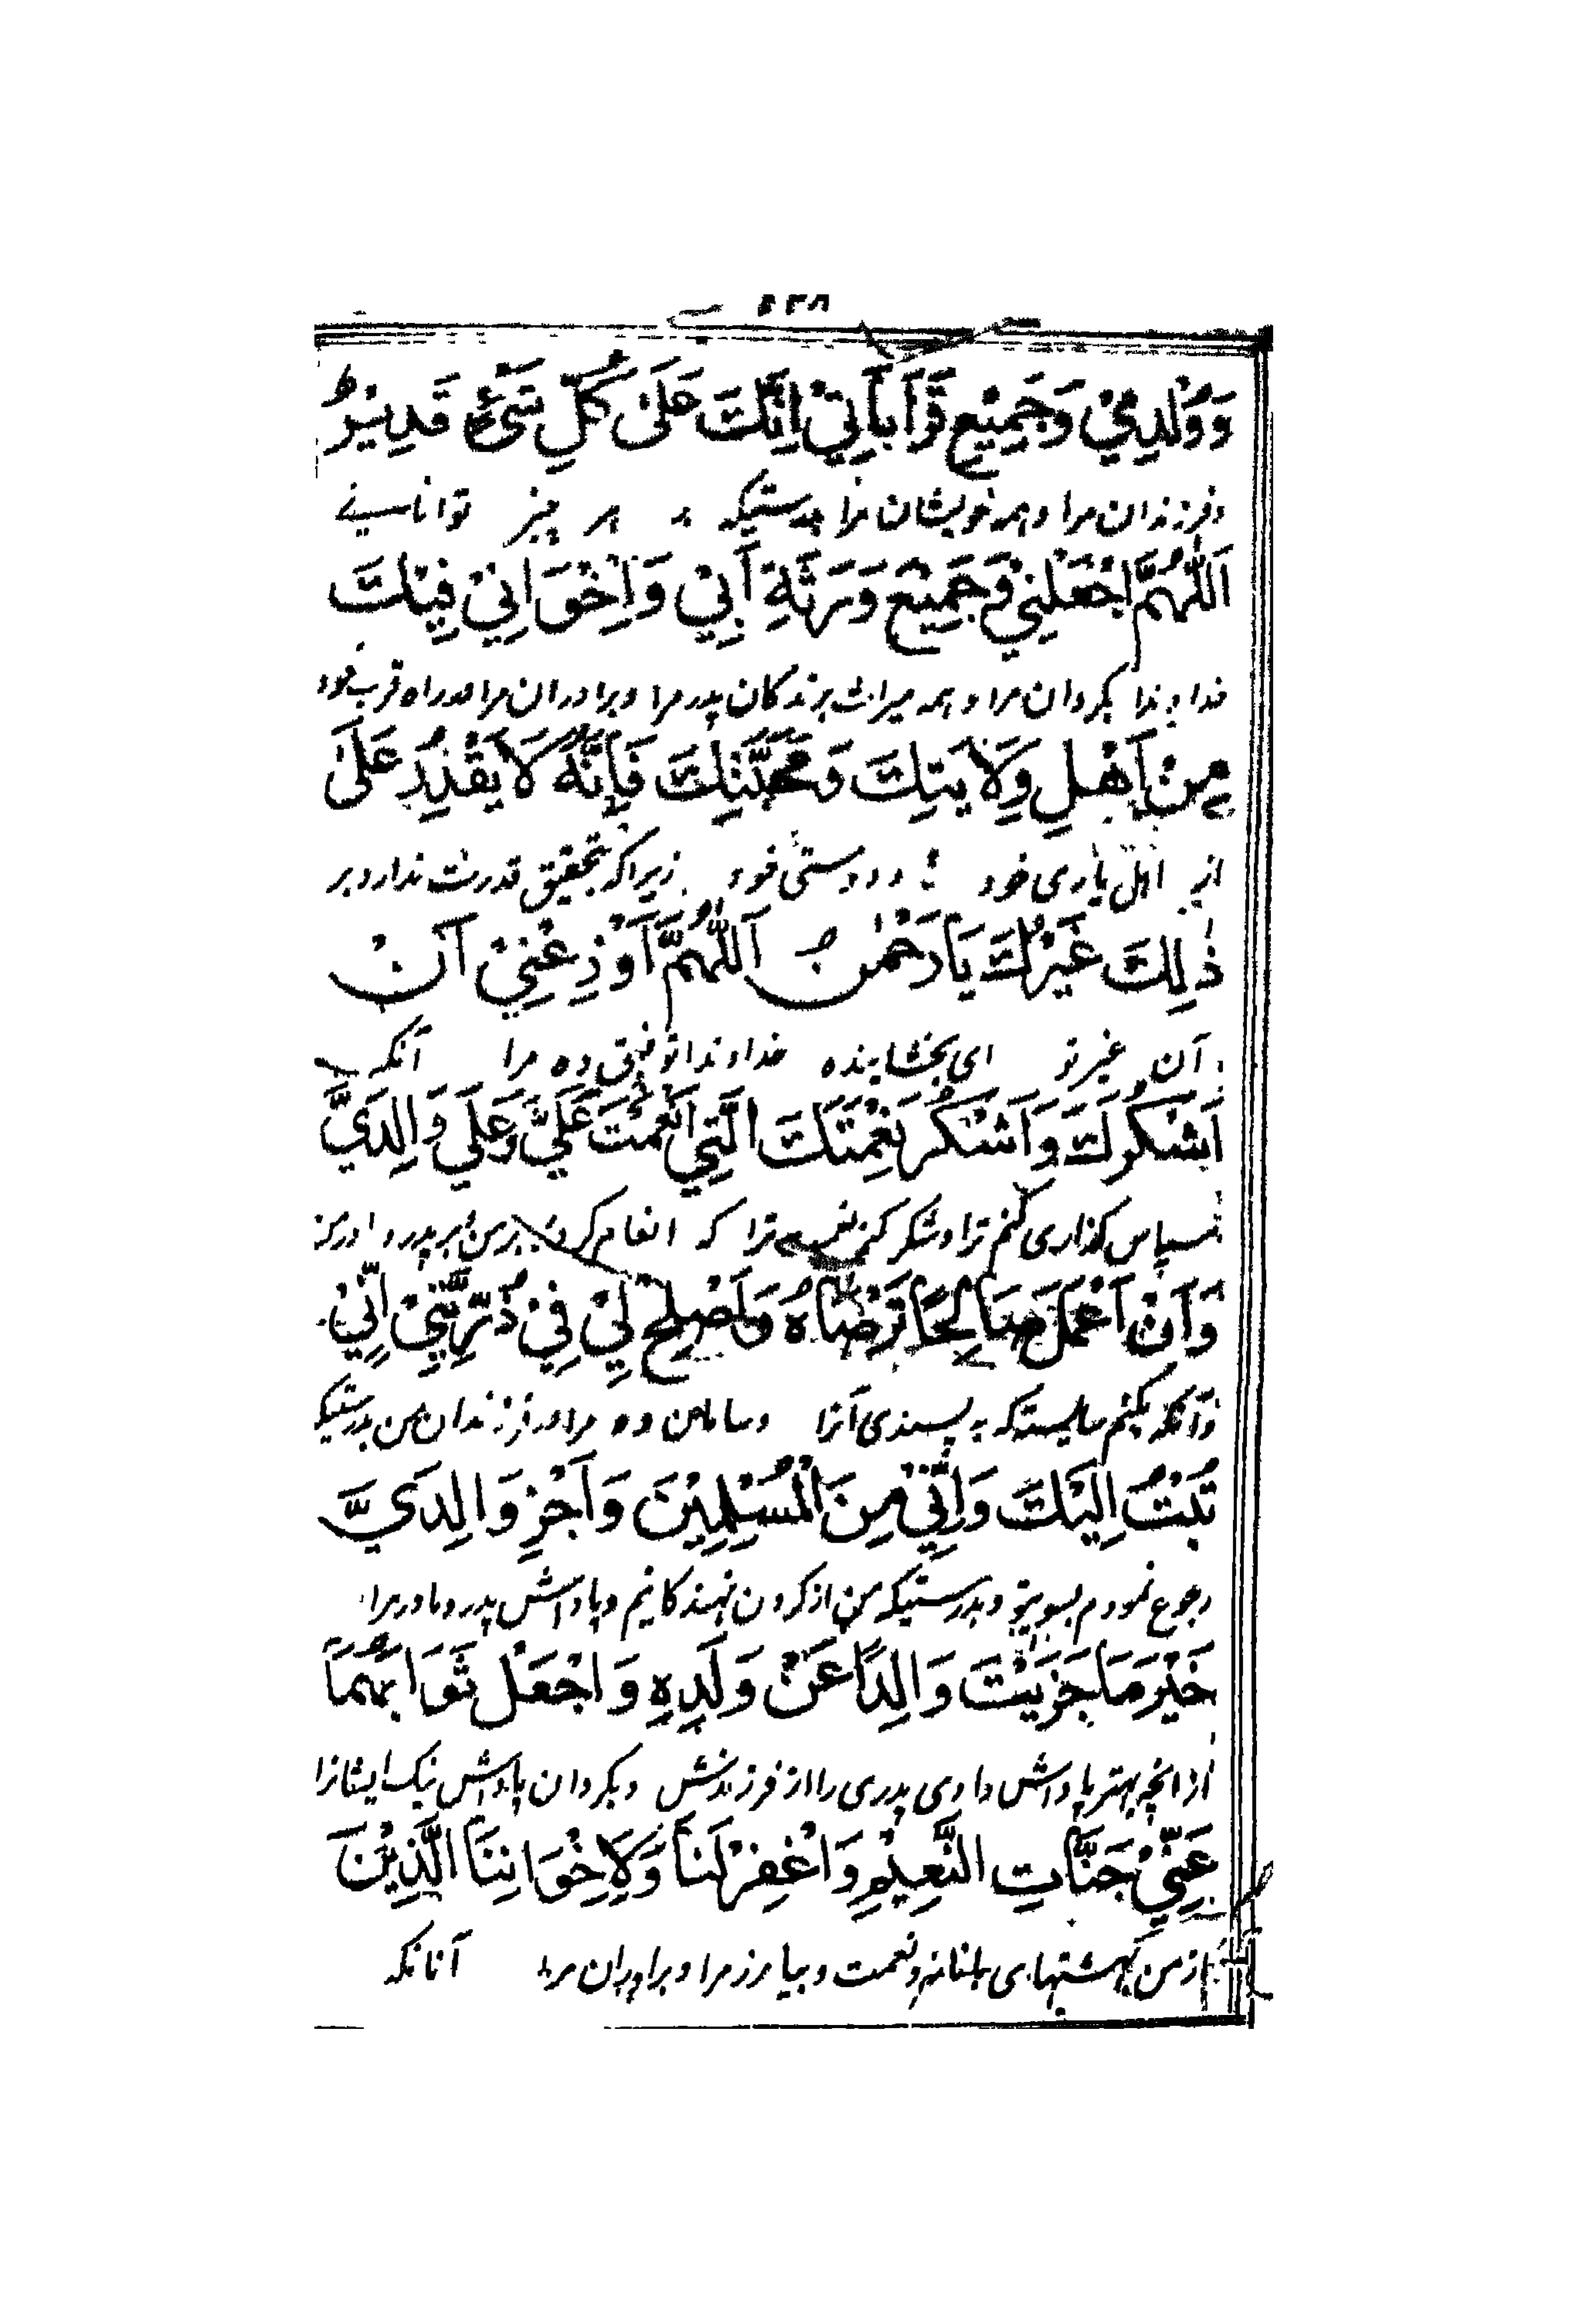 وَوُلْدِيْ وَجَمِيْعِ قَرَابَاتِيْ اِنَّكَ عَلٰى كُلِّ شَيْءٍ قَدِيْرٌ ط
و فرزندان مرا و همه خویشان مرا بدرستیکه بر هر چیز توانا
اَللّٰهُمَّ اجْعَلْنِيْ وَجَمِيْعَ وَرَثَةِ اَبِيْ وَاِخْوَانِيْ فِيْكَ
خداوندا بگردان مرا و همه میراث برندگان پدر مرا و برادران مرا در راه قرب خود
مِنْ اَهْلِ وِلَايَتِكَ وَمَحَبَّتِكَ فَاِنَّهٗ لَا يَقْدِرُ عَلٰى
از اهل یاری خود و دوستی خود زیرا که بتحقیق قدرت ندارد بر
ذٰلِكَ غَيْرُكَ يَا رَحْمٰنُ اَللّٰهُمَّ اَوْزِعْنِيْ اَنْ
آن غیر تو ای بخشاینده خداوندا توفیق ده مرا آنکه
اَشْكُرَكَ وَاَشْكُرَ نِعْمَتَكَ الَّتِيْ اَنْعَمْتَ عَلَيَّ وَعَلٰى وَالِدَيَّ
سپاس گذاری کنم ترا و شکر کنم نعمت ترا که انعام کردی بر من و بر پدر و مادر من
وَاَنْ اَعْمَلَ صَالِحًا تَرْضَاهُ وَاَصْلِحْ لِيْ فِيْ ذُرِّيَّتِيْ اِنِّيْ
و آنکه بکنم شایسته که به پسندی آنرا و سامان ده مرا در فرزندان من بدرستیکه
تُبْتُ اِلَيْكَ وَاِنِّيْ مِنَ الْمُسْلِمِيْنَ وَاَجْزِ وَالِدَيَّ
رجوع نمودم بسوی تو و بدرستیکه من از گردن نهندگانیم و پاداش پدر و مادر مرا
خَيْرَ مَا جَزَيْتَ وَالِدًا عَنْ وَلَدِهٖ وَاجْعَلْ ثَوَابَهُمَا
از انچه بهتر پاداش دادی پدری را از فرزندش و بگردان پاداش نیک ایشانرا
عَنِّيْ جَنَّاتِ النَّعِيْمِ وَاغْفِرْ لَنَا وَلِاِخْوَانِنَا الَّذِيْنَ
از من بهشتهای با نعمت و بیامرز مرا و برادران مرا آنانکه